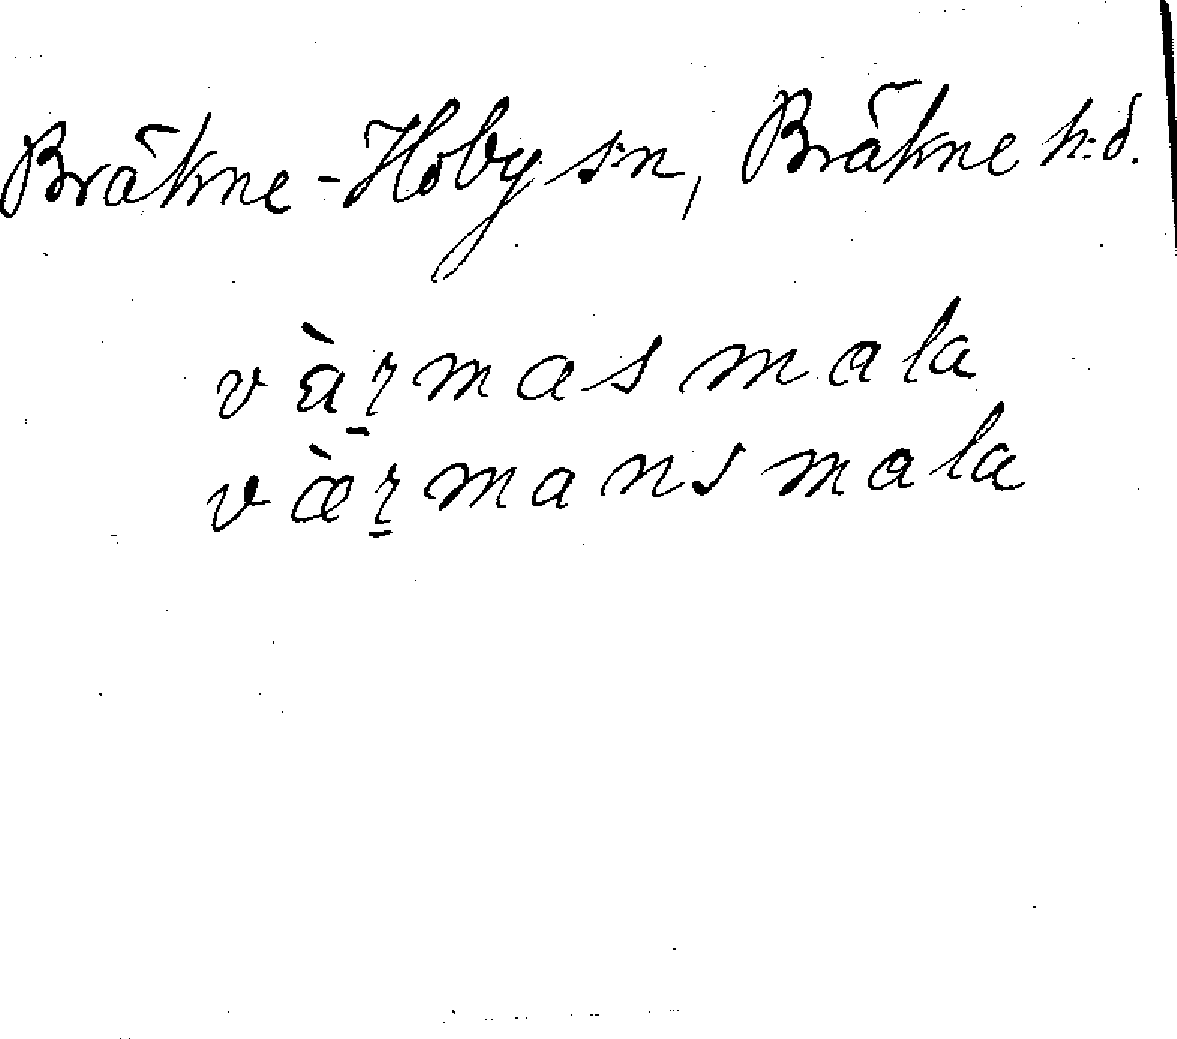 Bräkne-Hoby s:n, Bräkne h:d.
vàɽ̱masmala
væ̀ɽ̱mansmala